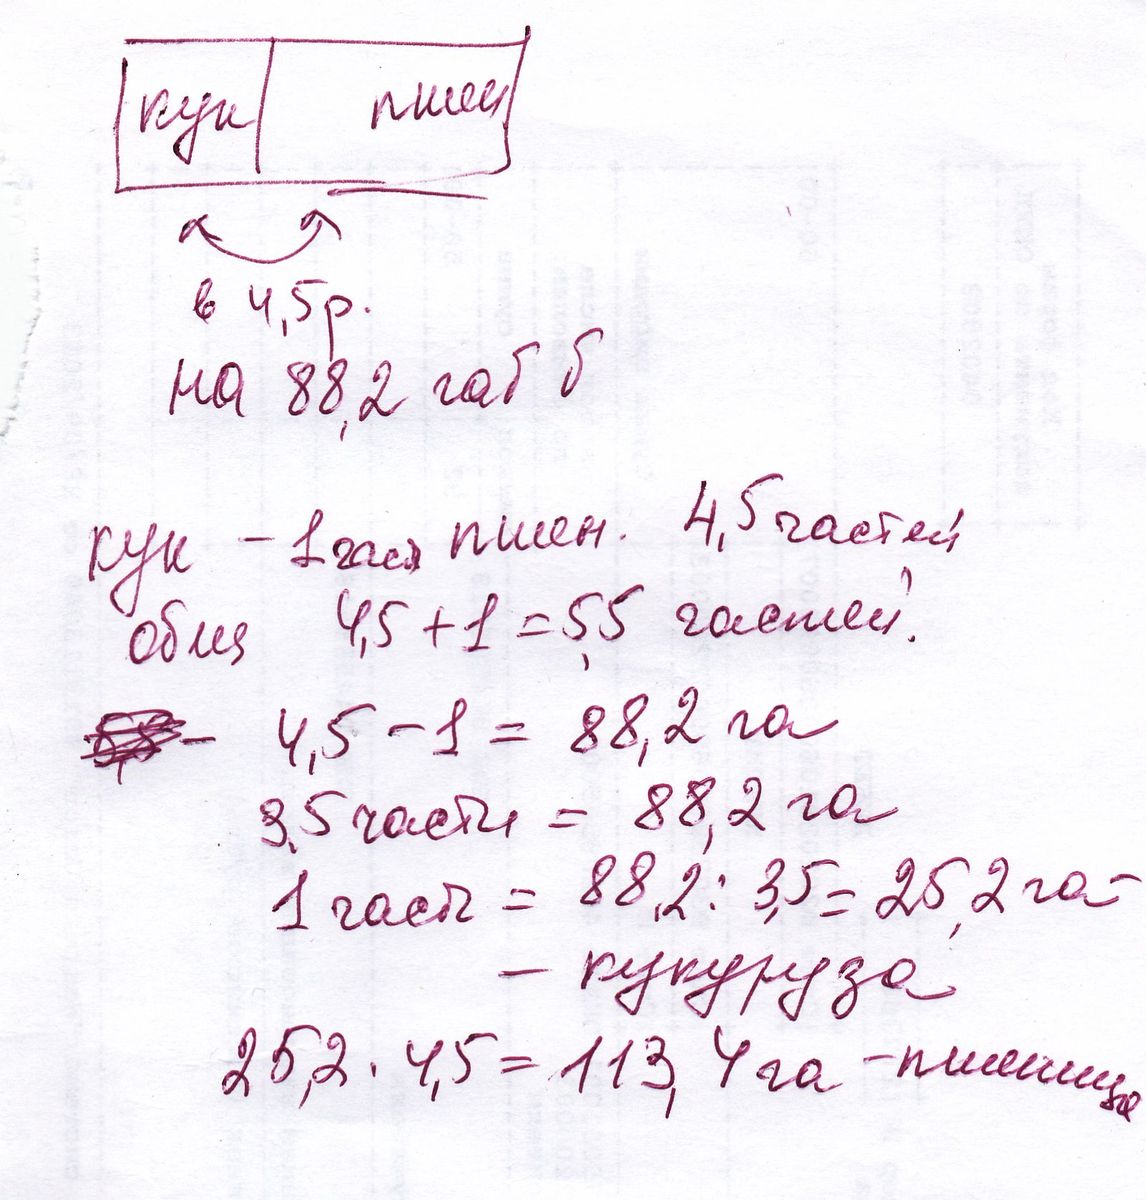 кук пшен
в 4,5 р.
на 88,2 га б б
кук - 1 част пшен. 4,5 частей
общ 4,5 + 1 = 5,5 частей.
- 4,5 - 1 = 88,2 га
3,5 части = 88,2 га
1 часть = 88,2 : 3,5 = 25,2 га -
- кукуруза
25,2 · 4,5 = 113,4 га - пшеница